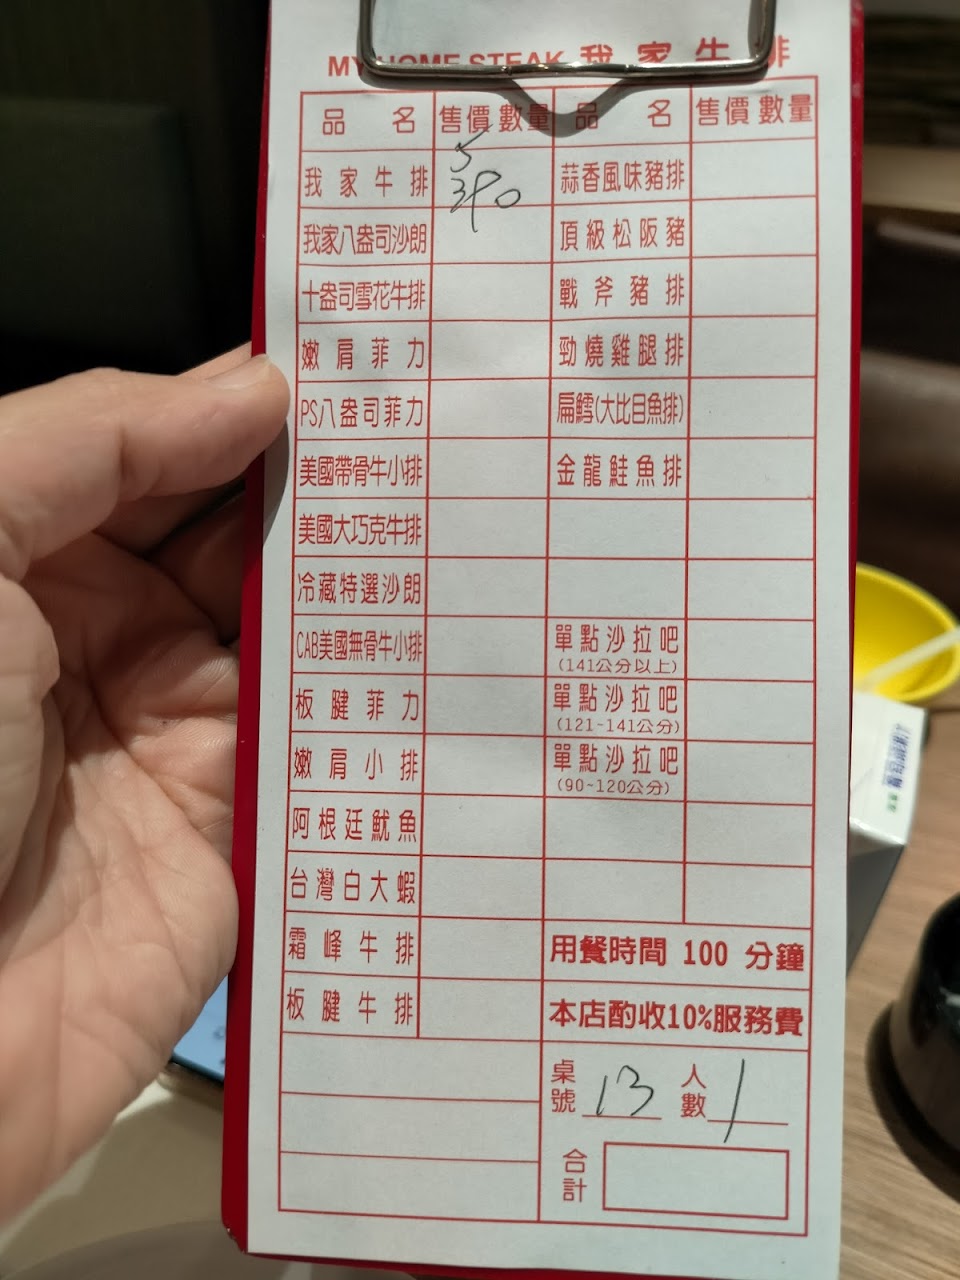 MY HOME STEAK 我家牛排
品名 售價數量 品名 售價數量
我家牛排 5 390 蒜香風味豬排
我家八盎司沙朗 頂級松阪豬
十盎司雪花牛排 戰斧豬排
嫩肩菲力 勁燒雞腿排
PS八盎司菲力 扁鱈(大比目魚排)
美國帶骨牛小排 金龍鮭魚排
美國大巧克牛排
冷藏特選沙朗
CAB美國無骨牛小排 單點沙拉吧
(141公分以上)
板腱菲力 單點沙拉吧
(121~141公分)
嫩肩小排 單點沙拉吧
(90~120公分)
阿根廷魷魚
台灣白大蝦
霜峰牛排 用餐時間 100 分鐘
板腱牛排 本店酌收10%服務費
桌號 13 人數 1
合計